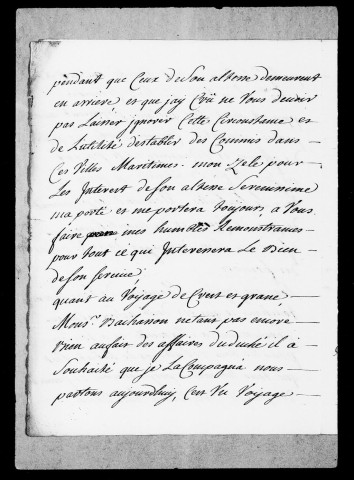 pendant que Ceux de Son altesse demeurent
en arriere, et que jay Crû ne Vous devoir
pas Laisser ignorer Cette Circonstance et
de Lutilité destablir des Commis dans
Ces Villes Maritimes. mon zele pour
Les Interest de Son altesse Serenissime
ma porté et me portera toujours, a Vous
faire mes humbles Remonstrances
pour tout ce qui Interessera Le Bien
de Son Service
quant au Voyage de Crest et grane
Mons.r Bachasson netant pas encore
Bien au fait des affaires du duché il à
Souhaité que je LaCompagna nous
partons aujourdhuy, Cest Un Voyage